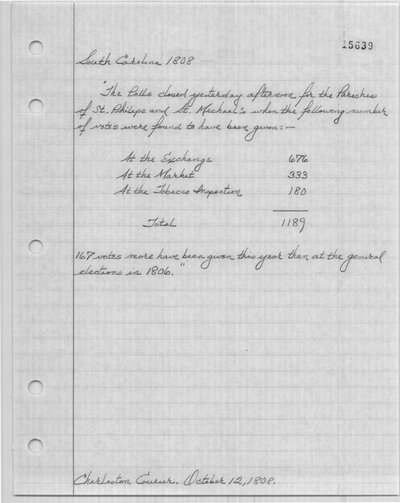 15639
South Carolina 1808
"The Polls closed yesterday afternoon for the Parishes
of St. Philips and St. Michael's when the following number
of votes were found to have been given:—
At the Exchange 676
At the Market 333
At the Tobacco Inspection 180
Total 1189
167 votes more have been given this year than at the general
elections in 1806."
Charleston Courier. October 12, 1808.